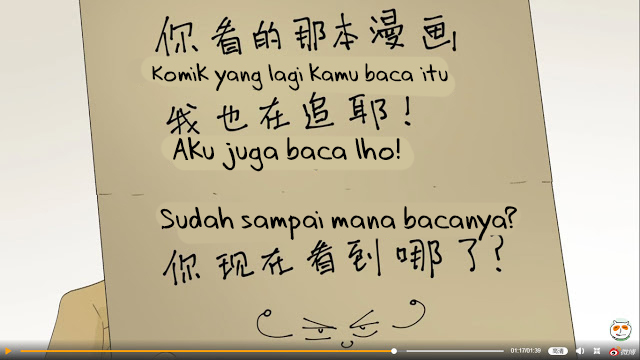 你看的那本漫画
Komik yang lagi kamu baca itu
我也在追耶！
Aku juga baca lho!
Sudah sampai mana bacanya?
你现在看到哪了？
01:17/01:39
高清
微博